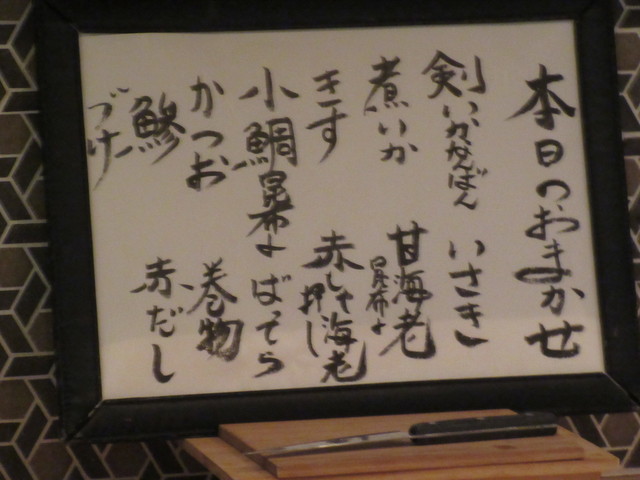 本日のおまかせ
剣いかかんばん いさき
煮いか 甘海老昆布〆
きす 赤しゃ海老押し
小鯛昆布〆 ばってら
かつお 巻物
鰺 赤だし
づけ